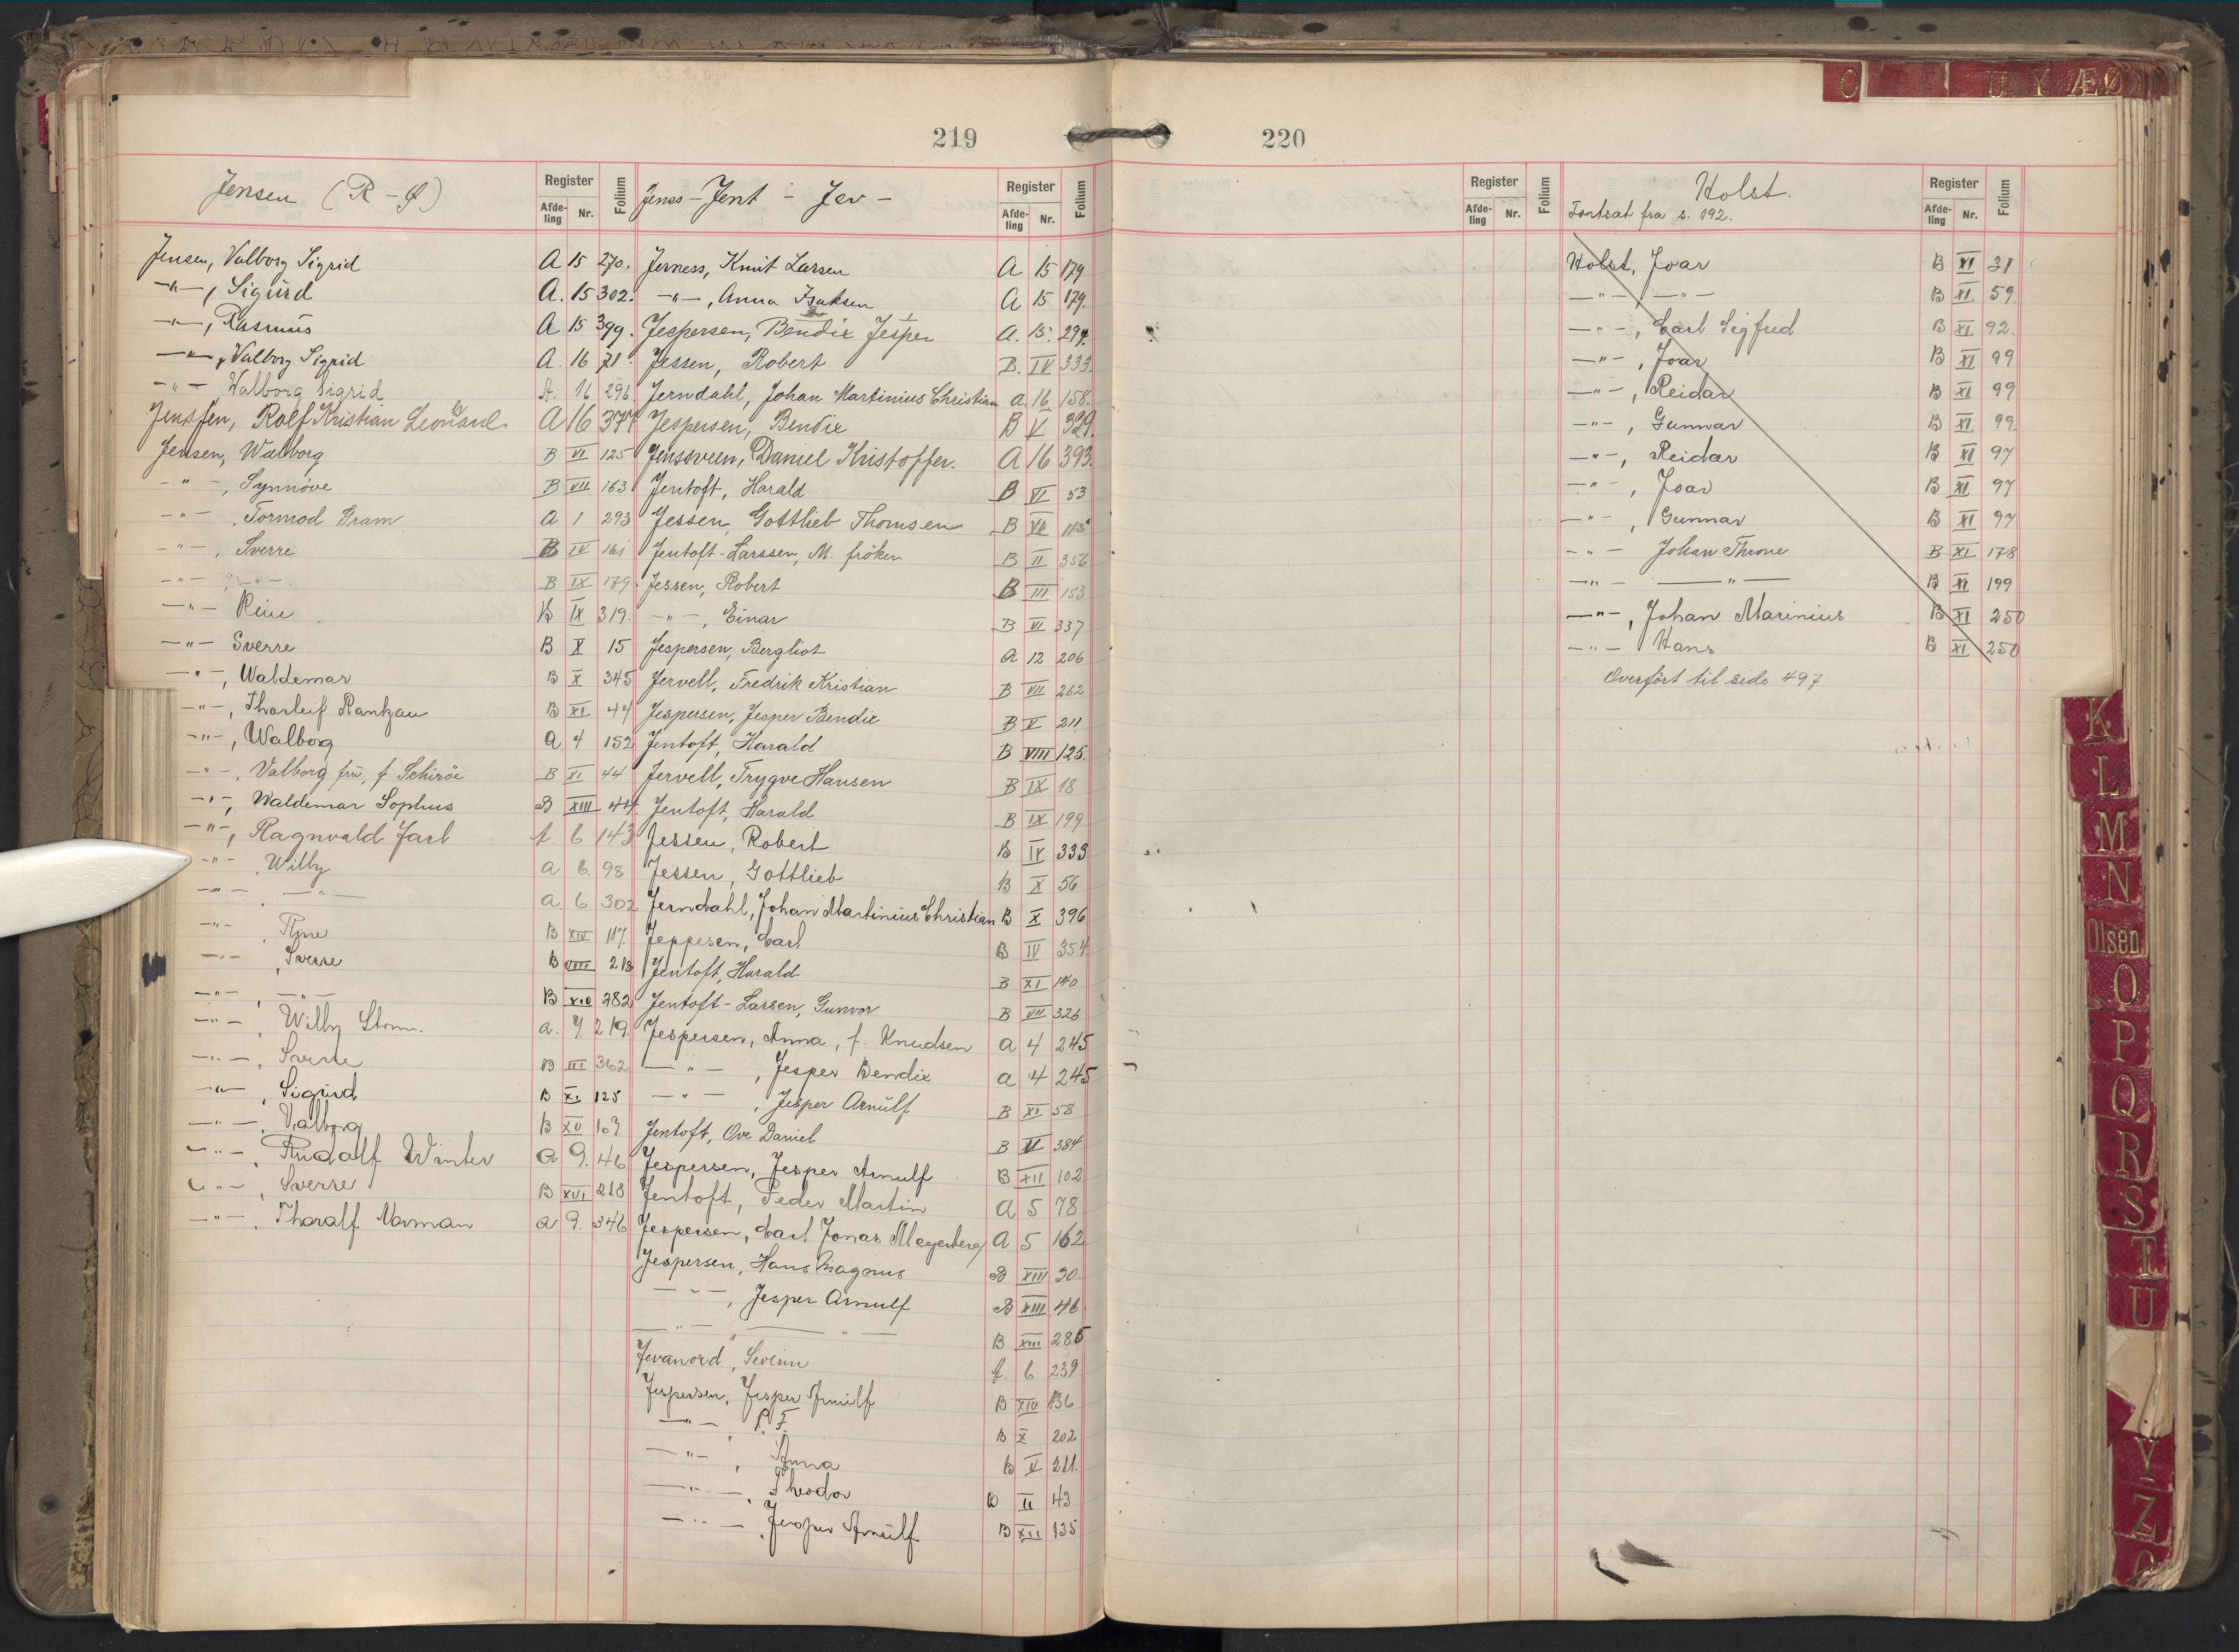 219
Jensen (R - Ø)
Register
Afde-ling Nr. Folium
Jensen, Valborg Sigrid A 15 270.
—"—, Sigurd A. 15 302.
—"—, Rasmus A 15 399.
—"—, Valborg Sigrid A. 16 71.
—"— Walborg Sigrid A. 16 296.
Jenssen, Rolf Kristian Leonard A 16 377
Jensen, Walborg B VI 125
—"—, Synnöve B VII 163
—"—, Tormod Gram A 1 293
—"—, Sverre B IX 161
—"—, —"— B IX 179.
—"— B IX 319.
—"— Sverre B X 15
—"—, Waldemar B X 345
—"—, Thorleif Rantzau B XI 44
—"—, Walborg A 4 152
—"—, Valborg fru, f. Schiröe B XI 44
—"—, Waldemar Sophus B XIII 44.
—"—, Ragnvald Jarl A. 6 143
—"—, Willy A 6. 98
—"—, —"— A 6 302
—"—, B XIV 117.
—"—, Sverre B VIII 218
—"—, —"— B XIV 282
—"—, Willy Storm. A. 7. 219.
—"—, Sverre B III 362
—"—, Sigurd B XI 125
—"—, Valborg B XV 107.
—"—, Rudolf Winter A 9. 46
—"—, Sverre B XVI 218
—"—, Tharalf Norman A 9. 346
Jenss - Jent - Jev -
Register
Afde-ling Nr. Folium
Jerness, Knut Larsen A. 15 179
—"—, Anna Isaksen A 15 179.
Jespersen, Bendix Jesper A. 15. 297.
Jessen, Robert B. IV 333.
Jerndahl, Johan Martinius Christian A. 16 158.
Jespersen, Bendix B V 329.
Jenssveen, Daniel Kristoffer. A 16 393.
Jentoft, Harald B VI 53
Jessen, Gottlieb Thomsen B VI 115
Jentoft-Larssen, M. fröken B II 356
Jessen, Robert B III 153
—"—, Einar B VI 337
Jespersen, Bergliot A 12 206
Jervell, Fredrik Kristian B VII 262
Jespersen, Jesper Bendix B V 211
Jentoft, Harald B VIII 125.
Jervell, Trygve Hansen B IX 18
Jentoft, Harald B IX 199
Jessen, Robert B IV 333
Jessen, Gottlieb B X 56
Jerndahl, Johan Martinius Christian B X 396
Jeppesen, Carl B IV 354
Jentoft, Harald B XI 140
Jentoft-Larsen, Gunvor B VII 326
Jespersen, Anna, f. Knudsen A 4 245
—"—, Jesper Bendix A 4 245
—"—, Jesper Arnulf B XI 58
Jentoft, Ove Daniel B VI 384
Jespersen, Jesper Arnulf B XII 102
Jentoft, Peder Martin A 5 78
Jespersen, Carl Jonas Meyerberg A 5 162
Jespersen, Hans Magnus B XIII 20.
—"—, Jesper Arnulf B XIII 46
—"—, —"— B XIII 285
Jevanord, Severin A. 6 239
Jespersen, Jesper Arnulf B XIV 136
—"—, P. F. B X 202
—"—, Anna B V 211.
—"—, Theodor B II 43
—"—, Jesper Arnulf B XII 135
220
Register
Afde-ling Nr. Folium
Holst.
Fortsat fra s. 192.
Register
Afde-ling Nr. Folium
Holst, Joar B XI 31
—"—, —"— B XI 59.
—"—, Carl Sigfred B XI 92.
—"—, Joar B XI 99
—"—, Reidar B XI 99
—"—, Gunnar B XI 99.
—"—, Reidar B XI 97
—"—, Joar B XI 97
—"—, Gunnar B XI 97
—"— Johan Throne B XI 178
—"— —"— B XI 199
—"—, Johan Marinius B XI 250
—"— Hans B XI 250
Overført til side 497
O U Y Æ Ø
K
L
M
N
Olsen
O
P
Q
R
S
T
U
Y
Z